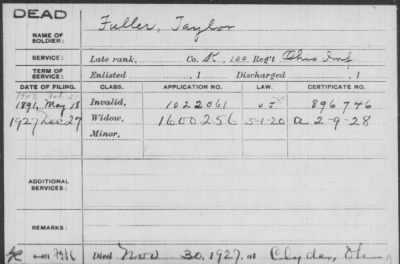 DEAD
NAME OF SOLDIER: Fuller, Taylor
SERVICE: Late rank, Co. K, 100 Reg't Ohio Inf.
TERM OF SERVICE: Enlisted , 1 Discharged , 1
DATE OF FILING. CLASS. APPLICATION NO. LAW. CERTIFICATE NO.
1891, May 18 Invalid, 1022061 896746
1927 Dec 27 Widow, 1600256 5-1-20 a 2-9-28
Minor,
ADDITIONAL SERVICES:
REMARKS:
Died Nov 30, 1927, at Clyde, Oh